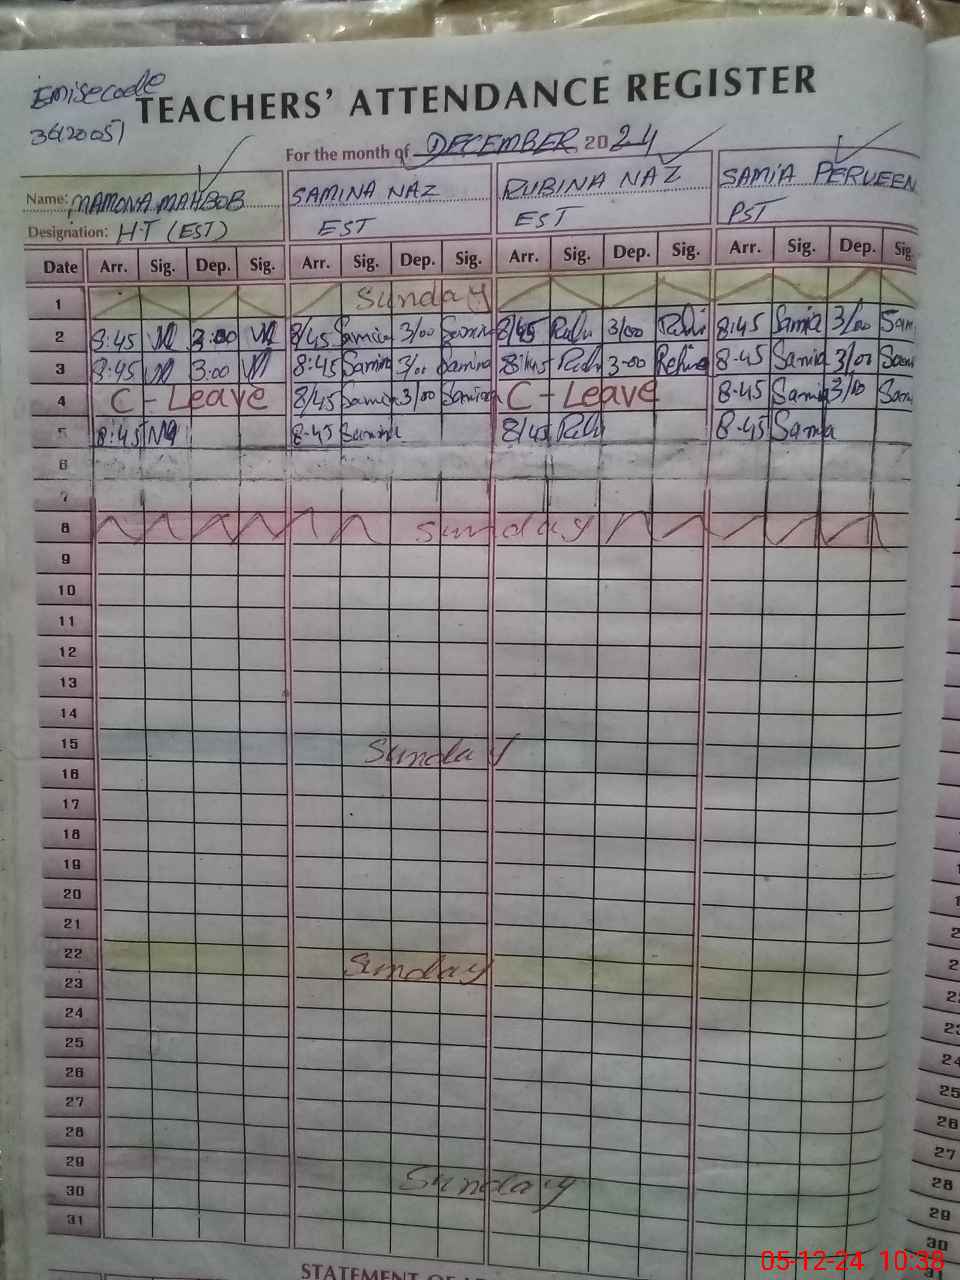 Emisecode
TEACHERS' ATTENDANCE REGISTER
For the month of DECEMBER 2024
Name: MAMONA MAHBOB SAMINA NAZ RUBINA NAZ SAMIA PERVEEN
Designation: H.T (EST) EST EST PST
Date Arr. Sig. Dep. Sig. Arr. Sig. Dep. Sig. Arr. Sig. Dep. Sig. Arr. Sig. Dep. Sig.
1 Sunday
2 8:45 3:00 8/45 Samina 3/00 Samina 8/45 3/00 8:45 Samia 3/00 Sam
3 8:45 3:00 8:45 Samina 3/00 Samina 8:45 3-00 8-45 Samia 3/00 Sam
4 C - Leave 8/45 Samina 3/00 Samina C - Leave 8-45 Samia 3/10 Sam
5 8:45 8-45 Samina 8/45 8-45 Samia
6
7
8 Sunday
9
10
11
12
13
14
15 Sunday
16
17
18
19
20
21
22 Sunday
23
24
25
26
27
28
29 Sunday
30
31
STATEMENT OF
24
25
26
27
28
29
30
31
05-12-24 10:38